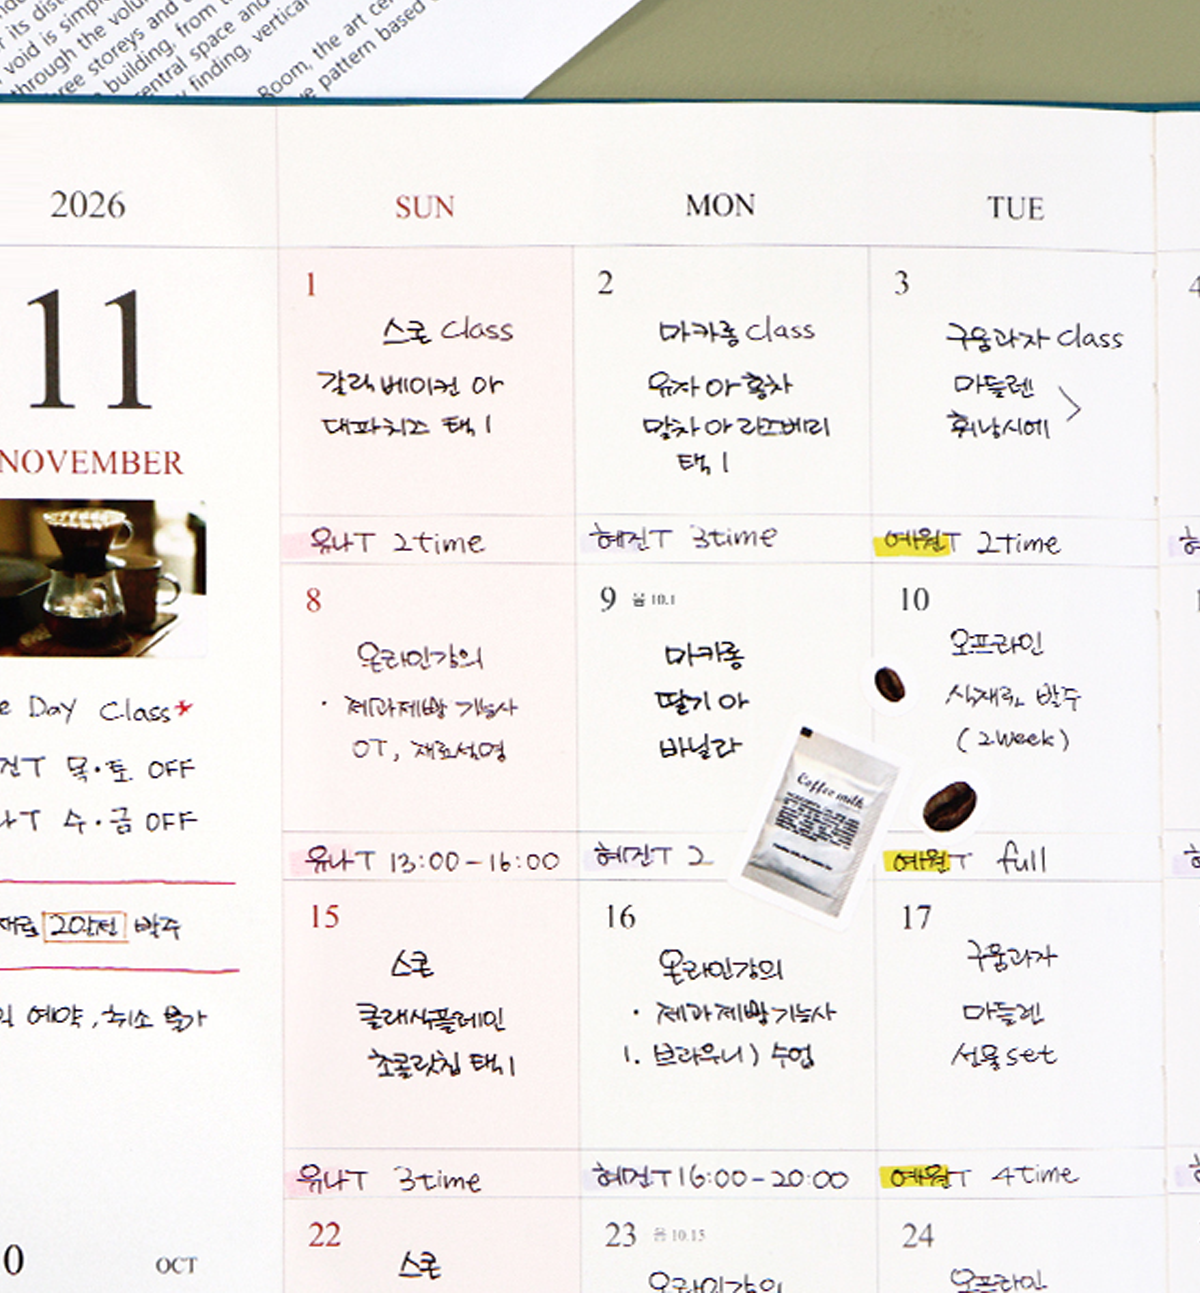 through the volu
storeys and
building, from
central space and
finding, vertical
Room, the art cen
pattern based
2026
SUN
MON
TUE
11
NOVEMBER
1
스콘 class
갈릭베이컨 or
대파치즈 택 1
유나T 2time
2
마카롱 class
유자 or 홍차
말차 or 라즈베리
택 1
혜진T 3time
3
구움과자 class
마들렌
휘낭시에
예원T 2time
Day Class*
T 목·토 OFF
T 수·금 OFF
2일전 발주
예약, 취소 불가
8
온라인강의
· 제과제빵 기능사
OT, 재료설명
유나T 13:00-16:00
9 음 10.1
마카롱
딸기 or
바닐라
혜진T 2
Coffee milk
10
오프라인
식재료 발주
(2week)
예원T full
15
스콘
클래식플레인
초콜릿칩 택1
유나T 3time
16
온라인강의
· 제과제빵기능사
1. 브라우니) 수업
혜진T 16:00-20:00
17
구움과자
마들렌
선물set
예원T 4time
22
스콘
23 음 10.15
온라인강의
24
오프라인
OCT